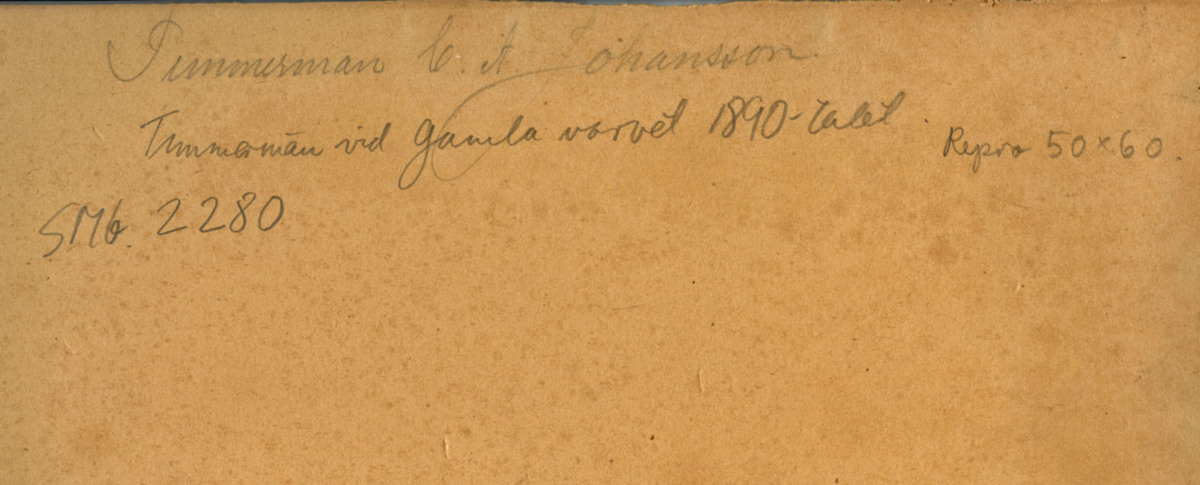 Timmerman C. A Johansson.
Timmerman vid gamla varvet 1890-talet.
Repro 50×60.
SMb. 2280